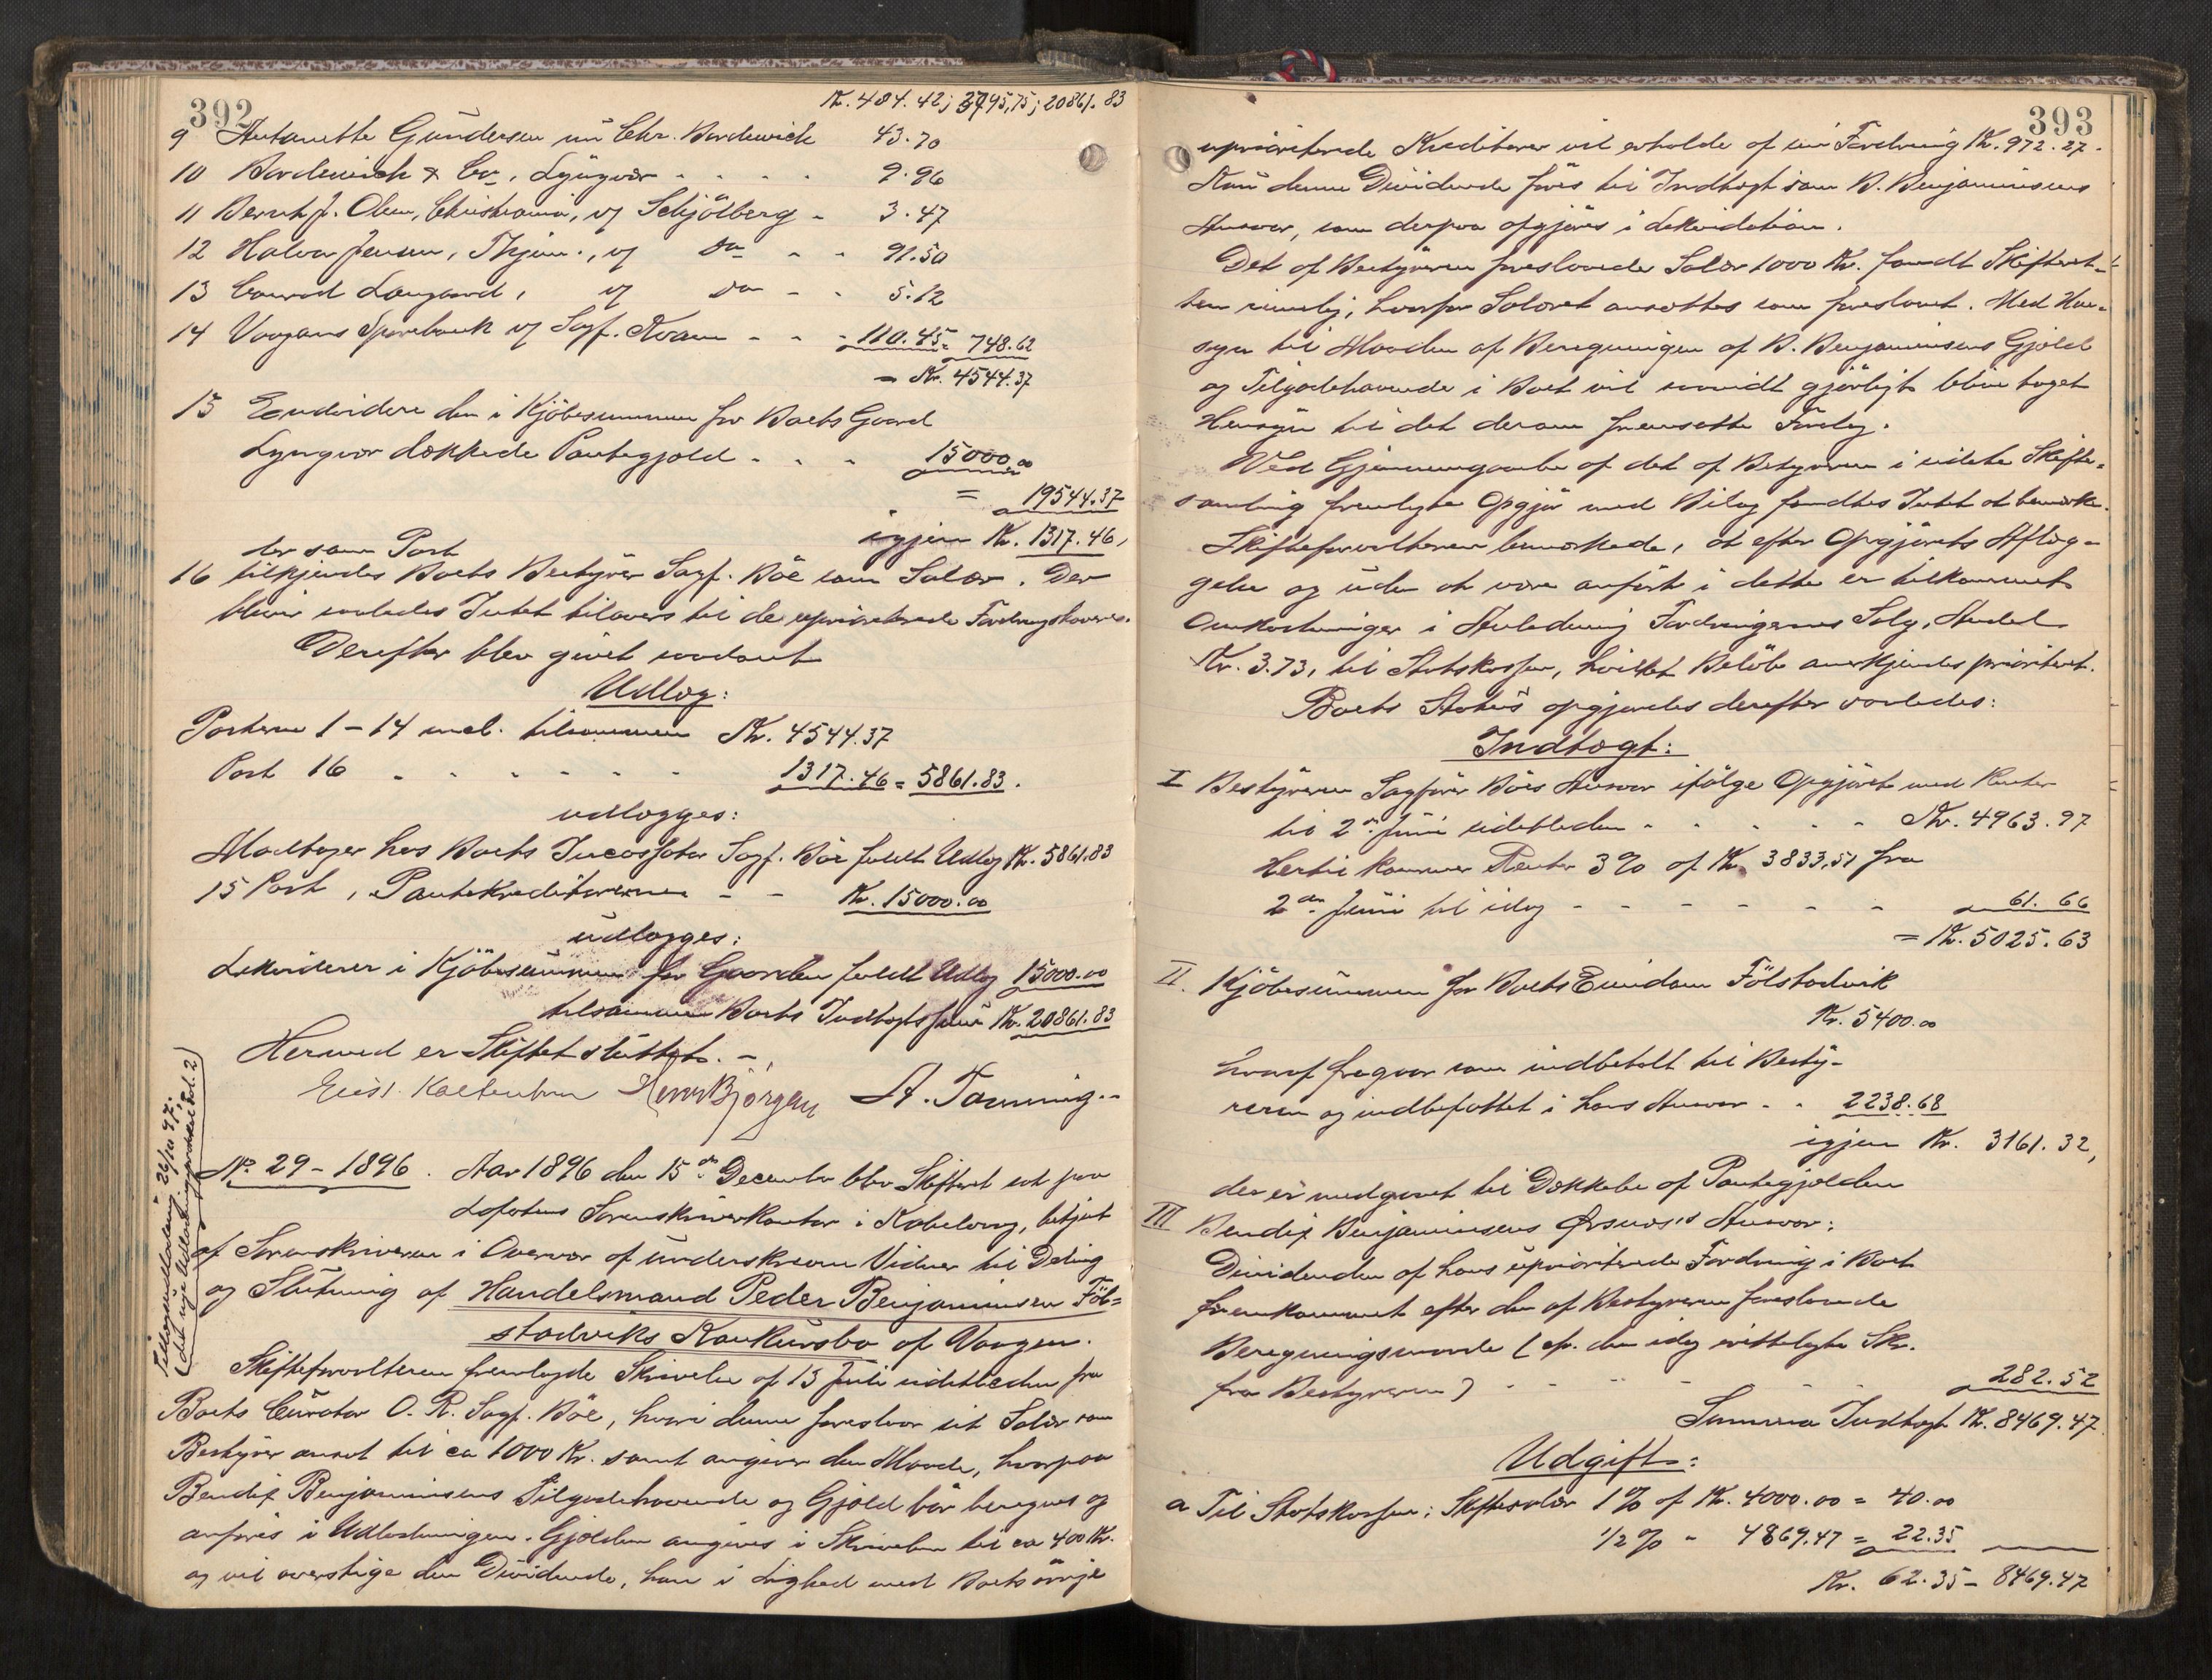 392
Kr. 484.42; 3795,75; 20861.83
9 Antonette Gundersen v/ Chr. Bordewich 43.70
10 Bordewich & Co, Lyngvær - - - - 9.96
11 Bernt J. Olsen, Christiania, v/ Schjölberg - 3.47
12 Halvor Jensen, Thjem., v/ Do - - 91.50
13 Conrad Langaard, v/ Do - - 5.12
14 Vaagans Sparebank v/ Sagf. Kvam - - - 110.45 = 748.62
= Kr. 4544.37
15 Endvidere den i Kjöbesummen for Boets Gaard
Lyngvær dækkede Pantegjæld - - - 15000.00
= 19544.37
igjen Kr. 1317.46,
der som Post
16 tilkjendes Boets Bestyrer Sagf. Böe som Salær. Der
bliver saaledes Intet tilovers til de uprioriterede Fordringshavere.
Derefter blev givet saadant
Udlæg:
Posterne 1-14 incl. tilsammen Kr. 4544.37
Post 16 - - - - - - 1317.46 = 5861.83.
udlægges:
Modtager hos Boets Incassator Sagf. Böe fuldt Udlæg Kr. 5861.83
15 Post, Pantekreditorerne - - Kr. 15000.00
udlægges:
Likviderer i Kjöbesummen for Gaarden fuldt Udlæg 15000.00
tilsammen Boets Indtægtssum Kr. 20861.83
Hermed er Skiftet sluttet. -
Eilert Kaltenborn Henr Bjørgan A. Tanning.
Tillægsudlodning 26/10 97.
(det nye Udlodningsprotokol fol. 2)
No. 29 - 1896. Aar 1896 den 15de December blev Skifteret sat paa
Lofotens Sorenskriverkontor i Kabelvaag, betjent
af Sorenskriveren i Overvær af underskrevne Vidner til Deling
og Slutning af Handelsmand Peder Benjaminsen Föl=
stadviks Konkursbo af Vaagan.
Skifteforvalteren fremlagde Skrivelse af 13 Juli sidstleden fra
Boets Curator O. R. Sagf. Böe, hvori denne foreslaar sit Salær som
Bestyrer ansat til ca 1000 Kr. samt angiver den Maade, hvorpaa
Bendix Benjaminsens Tilgodehavende og Gjæld bör beregnes og
anføres i Udlodningen. Gjælden angives i Skrivelsen til ca 400 Kr.
og vil overstige den Dividende, han i Lighed med Boets övrige
393
uprioriterede Kreditorer vil erholde af sin Fordring Kr. 972.27.
Kun denne Dividende föres til Indtægt som B. Benjaminsens
Ansvar, som derpaa opgjöres i Likvidation.
Det af Bestyreren foreslaaede Salær 1000 Kr. fandt Skifteret-
ten rimelig, hvorfor Salæret ansættes som foreslaaet. Med Hen-
syn til Maaden af Beregningen af B. Benjaminsens Gjæld
og Tilgodehavende i Boet vil saavidt gjörligt blive taget
Hensyn til det derom fremsatte Forslag.
Ved Gjennemgaaelse af det af Bestyreren i sidste Skifte-
samling fremlagte Opgjör med Bilag fandtes Intet at bemærke.
Skifteforvalteren bemærkede, at efter Opgjörets Aflæg-
gelse og uden at være anfört i dette er tilkommet
Omkostninger i Anledning Fordringernes Salg, Andel
Kr. 3.73, til Statskassen, hvilket Belöb anerkjendes prioriteret.
Boets Status opgjordes derefter saaledes:
Indtægt:
I Bestyreren Sagförer Böes Ansvar ifölge Opgjöret med Renter
til 2den Juni sidstleden - - - - - Kr. 4963.97
Hertil kommer Renter 3% af Kr. 3833,51 fra
2den Juni til idag - - - - - - 61.66
= Kr. 5025.63
II. Kjöbesummen for Boets Eiendom Fölstadvik
Kr. 5400.00
hvoraf fragaar som indbetalt til Besty-
reren og indbefattet i hans Ansvar - - 2238.68
igjen Kr. 3161.32,
der er medgaaet til Dækkelse af Pantegjælden
III Bendix Benjaminsens Ørsnæs's Ansvar:
Dividenden af hans uprioriterede Fordring i Boet
fremkommet efter den af Bestyreren foreslaaede
Beregningsmaade (cfr. den idag erittelagte Skr.
fra Bestyreren) - - - - - - 282.52
Summa Indtægt Kr. 8469.47
Udgift:
a Til Statskassen: Skiftesalær 1% af Kr. 4000.00 = 40.00
1/2% - 4869.47 = 22.35
Kr. 62.35 - 8469.47